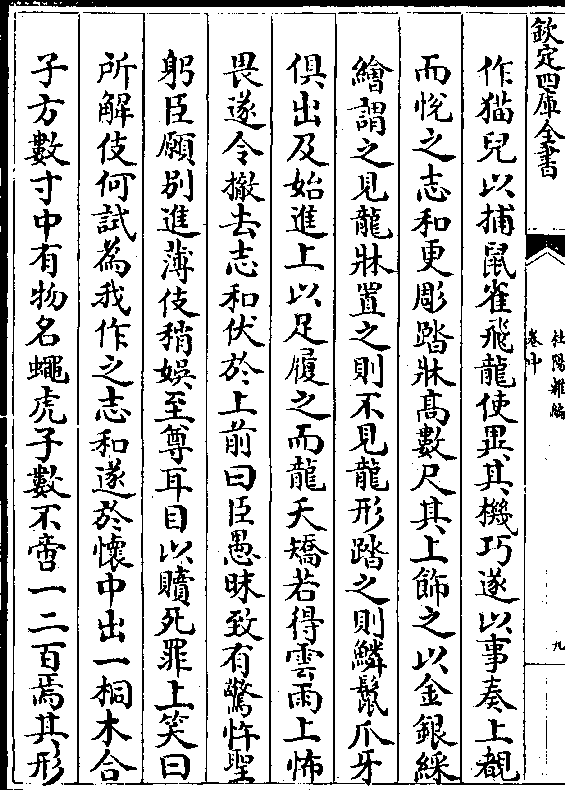 欽定四庫全書
杜陽雜編
卷中
九
作猫兒以捕鼠雀飛龍使異其機巧遂以事奏上覩
而悅之志和更彫踏牀髙數尺其上飾之以金銀綵
繪謂之見龍牀置之則不見龍形踏之則鱗鬛爪牙
俱出及始進上以足履之而龍夭矯若得雲雨上怖
畏遂令撤去志和伏於上前曰臣愚昧致有驚忤聖
躬臣願别進薄伎稍娛至尊耳目以贖死罪上笑曰
所解伎何試為我作之志和遂於懷中出一桐木合
子方數寸中有物名蠅虎子數不啻一二百焉其形